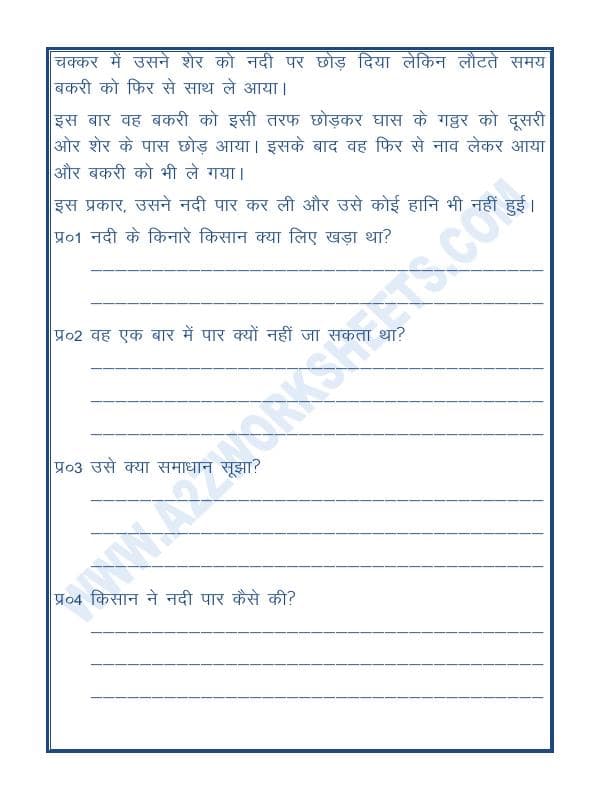 चक्कर में उसने शेर को नदी पर छोड़ दिया लेकिन लौटते समय
बकरी को फिर से साथ ले आया।
इस बार वह बकरी को इसी तरफ छोड़कर घास के गठ्ठर को दूसरी
ओर शेर के पास छोड़ आया। इसके बाद वह फिर से नाव लेकर आया
और बकरी को भी ले गया।
इस प्रकार, उसने नदी पार कर ली और उसे कोई हानि भी नहीं हुई।
प्र०1 नदी के किनारे किसान क्या लिए खड़ा था?
प्र०2 वह एक बार में पार क्यों नहीं जा सकता था?
प्र०3 उसे क्या समाधान सूझा?
प्र०4 किसान ने नदी पार कैसे की?
WWW.A2ZWORKSHEETS.COM